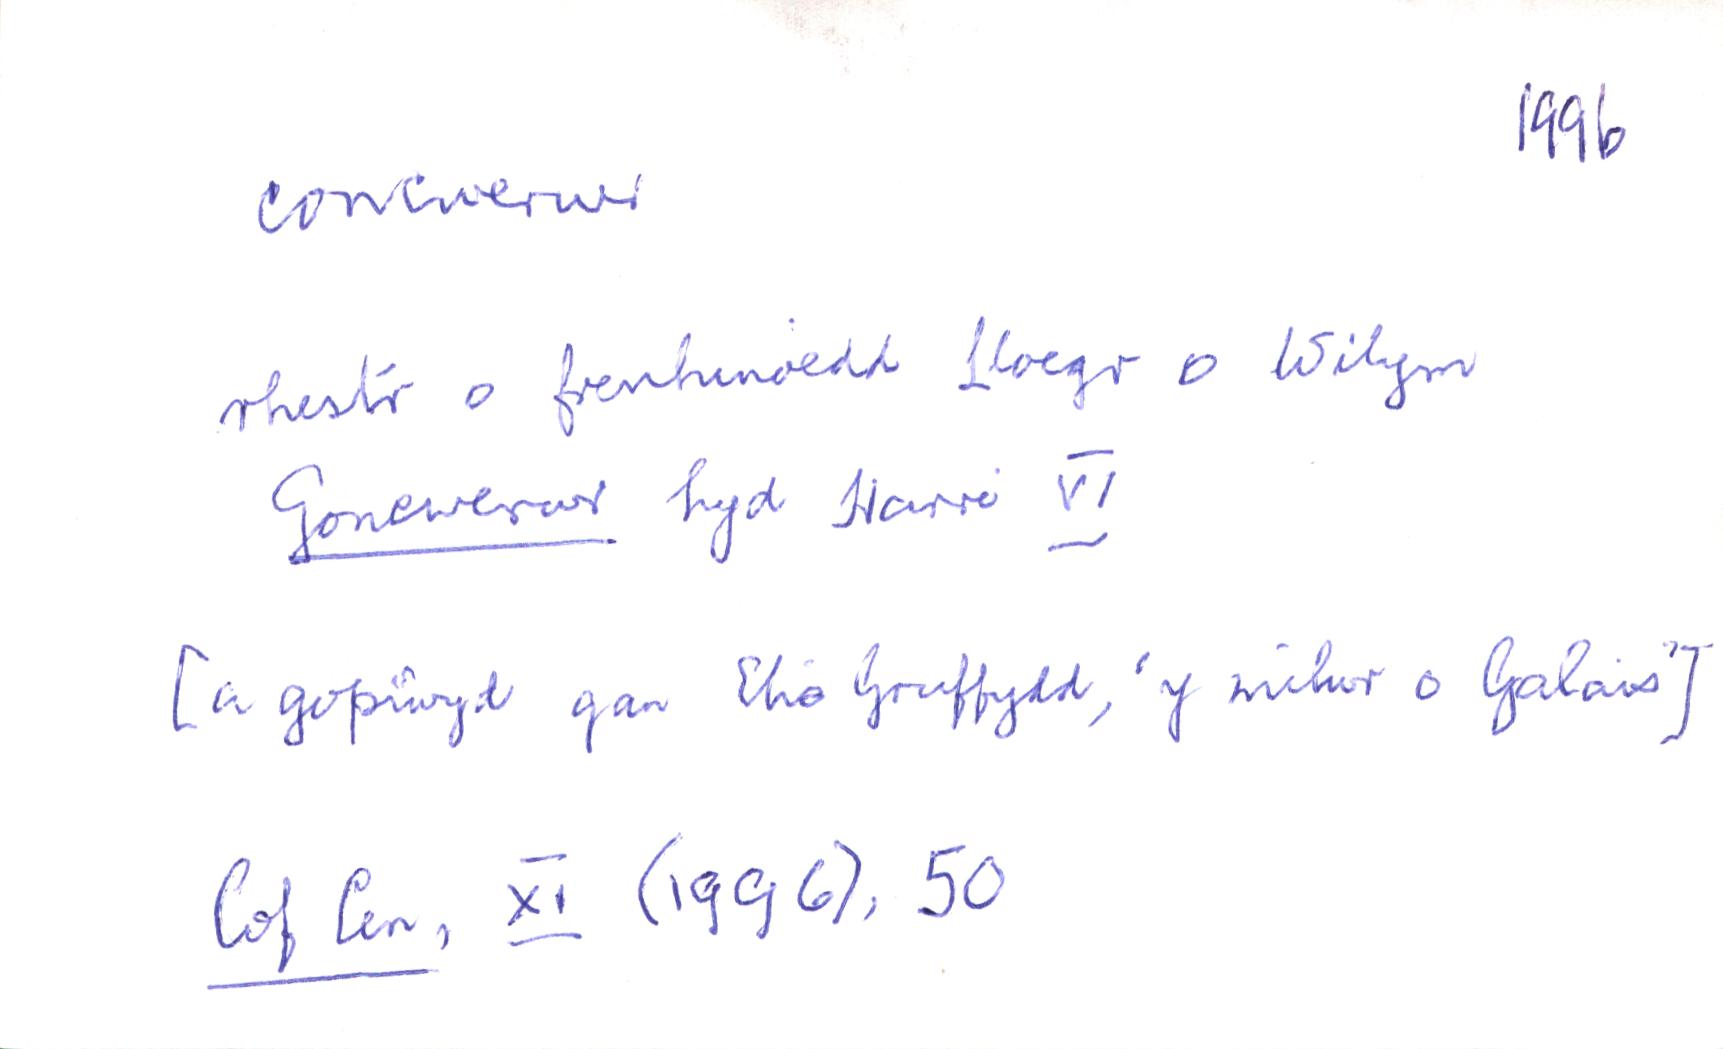 1996
concwerwr
rhestr o frenhinoedd Lloegr o Wilym
Goncwerwr hyd Harri VI
[a gopïwyd gan Elis Gruffydd, 'y milwr o Galais']
Cof Cen, XI (1996), 50